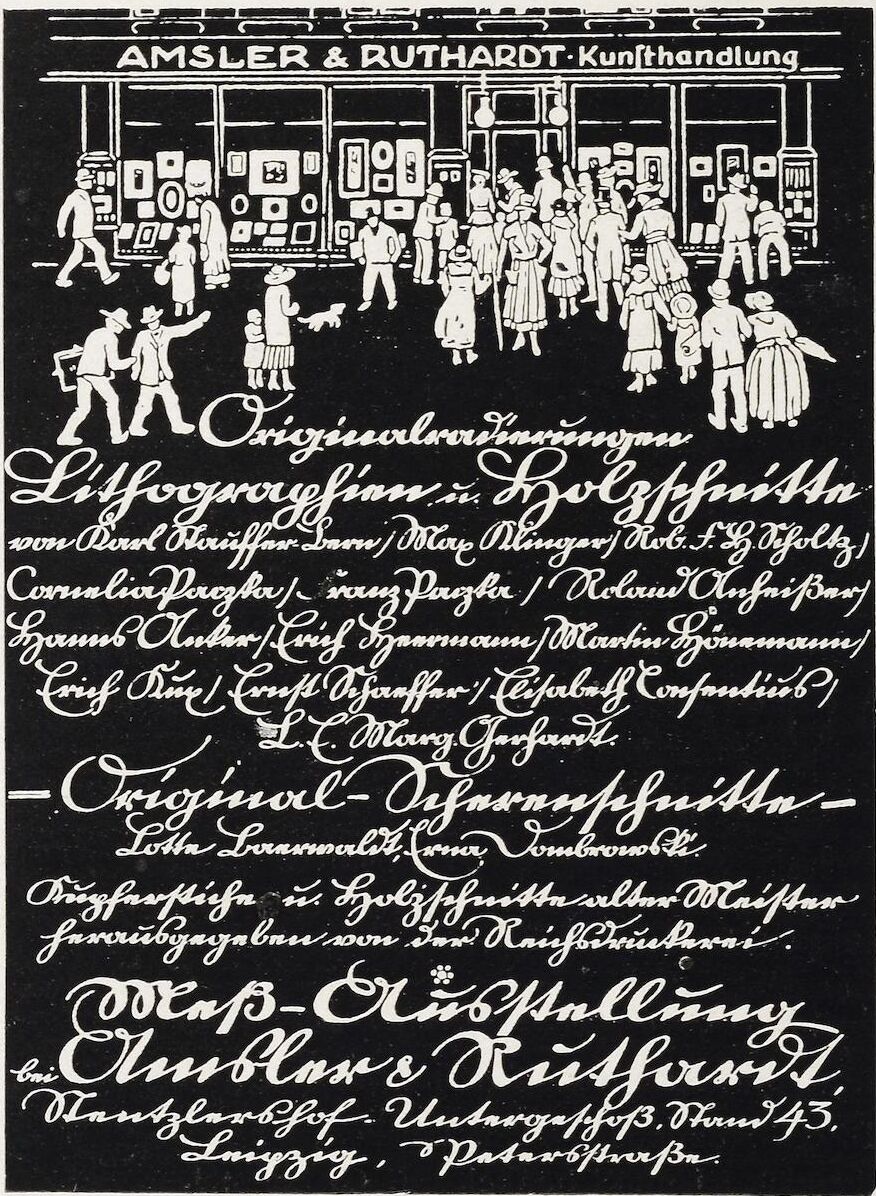 AMSLER & RUTHARDT · Kunſthandlung
Originalradierungen
Lithographien u. Holzschnitte
von Karl Stauffer-Bern / Max Klinger / Rob. F. H. Scholtz /
Cornelia Paczka / Franz Paczka / Roland Anheißer /
Hanns Anker / Erich Heermann / Martin Hönemann /
Erich Kux / Ernst Schaeffer / Elisabeth Consentius /
L. E. Marg. Gerhardt.
— Original-Scherenschnitte —
Lotte Baerwaldt, Erna Dombrowski.
Kupferstiche u. Holzschnitte alter Meister
herausgegeben von der Reichsdruckerei.
Meß-Ausstellung
bei Amsler & Ruthardt,
Stentzlershof - Untergeschoß, Stand 43,
Leipzig, Petersstraße.